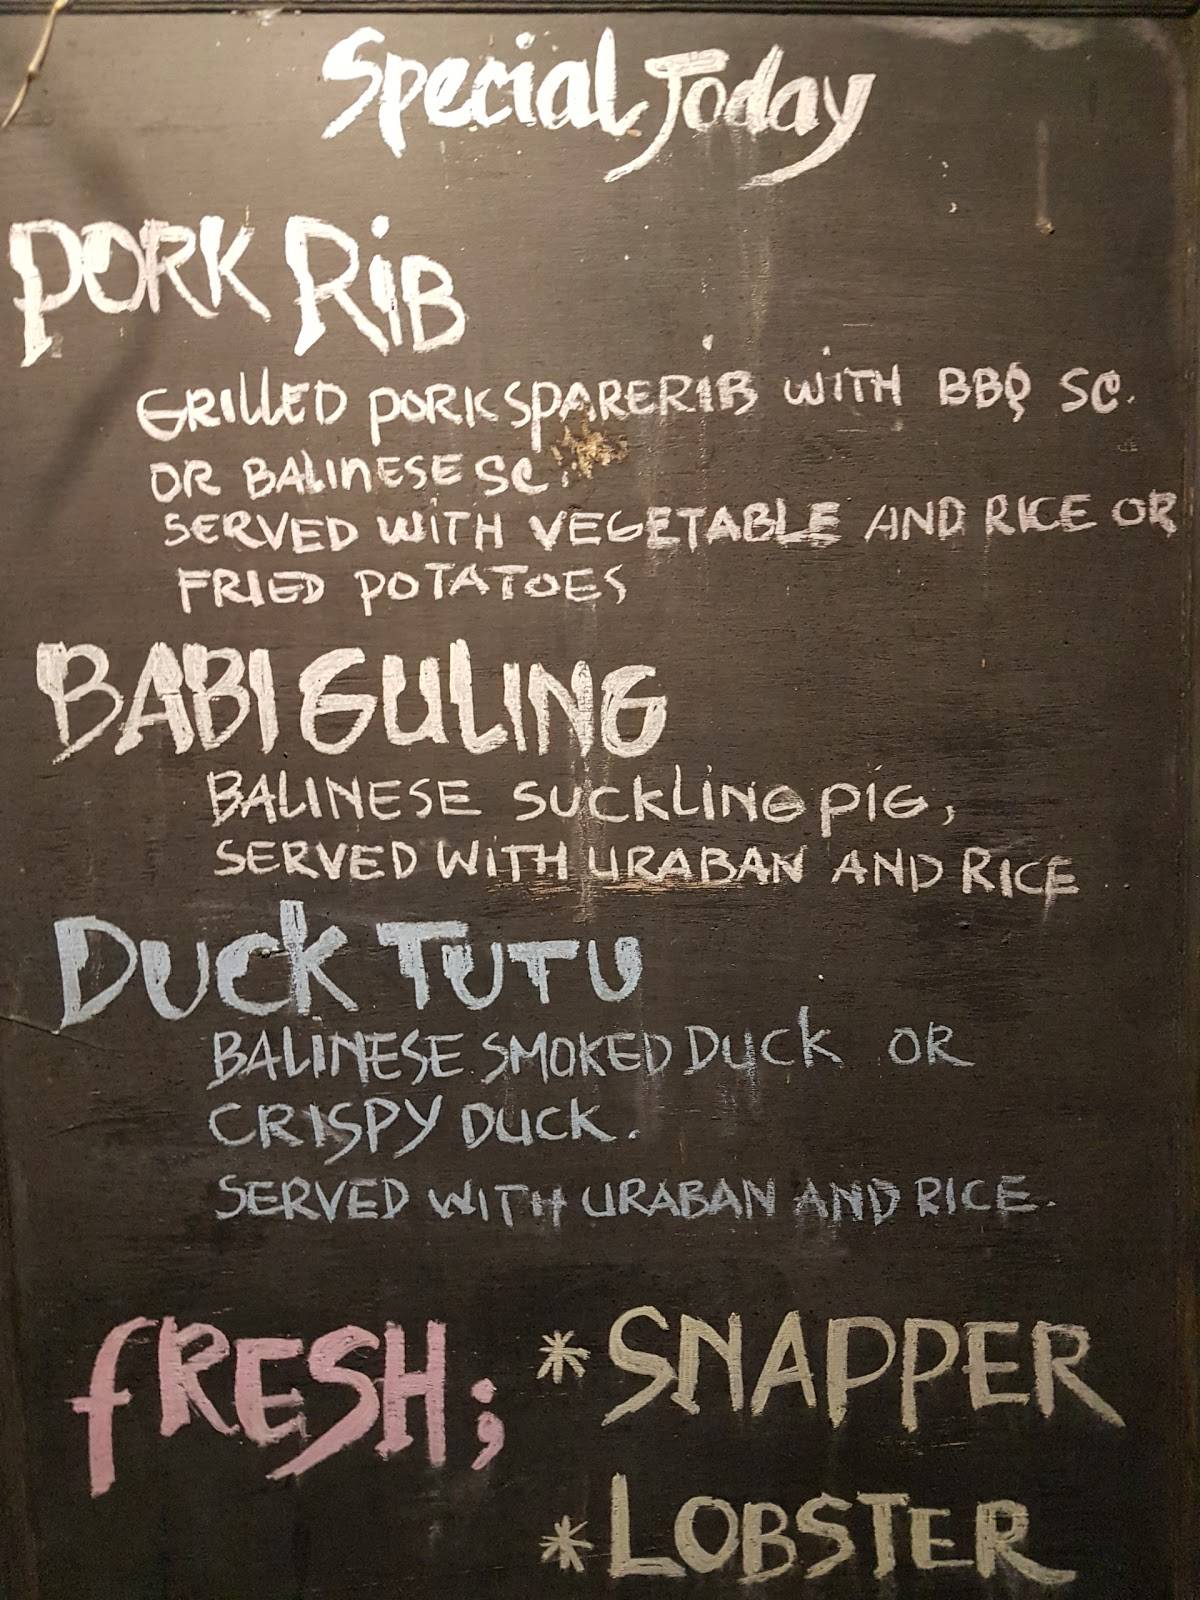 Special Today
PORK RiB
GRILLED PORK SPARERIB WITH BBQ SC.
OR BALINESE SC.
SERVED WITH VEGETABLE AND RICE OR
FRIED POTATOES
BABI GULING
BALINESE SUCKLING PIG,
SERVED WITH URABAN AND RICE
DUCK TUTU
BALINESE SMOKED DUCK OR
CRISPY DUCK.
SERVED WITH URABAN AND RICE.
fRESH; * SNAPPER
* LOBSTER